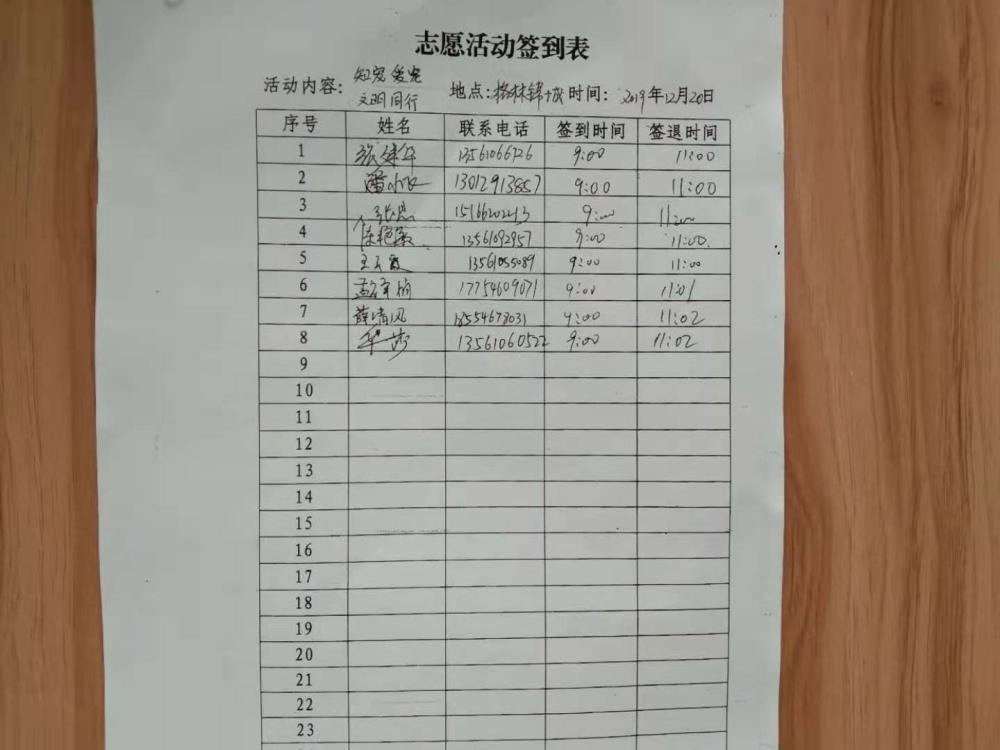 志愿活动签到表
活动内容: 知宠爱宠 文明同行 地点: 格林锦城 时间: 2019年12月20日
序号 姓名 联系电话 签到时间 签退时间
1 张建军 13561066726 9:00 11:00
2 13012913857 9:00 11:00
3 张思 15166202213 9:00 11:00
4 陈艳敏 13561092957 9:00 11:00
5 王云霞 13561055089 9:00 11:00
6 17754609071 9:00 11:01
7 薛清风 18554678031 9:00 11:02
8 华莎 13561060522 9:00 11:02
9
10
11
12
13
14
15
16
17
18
19
20
21
22
23